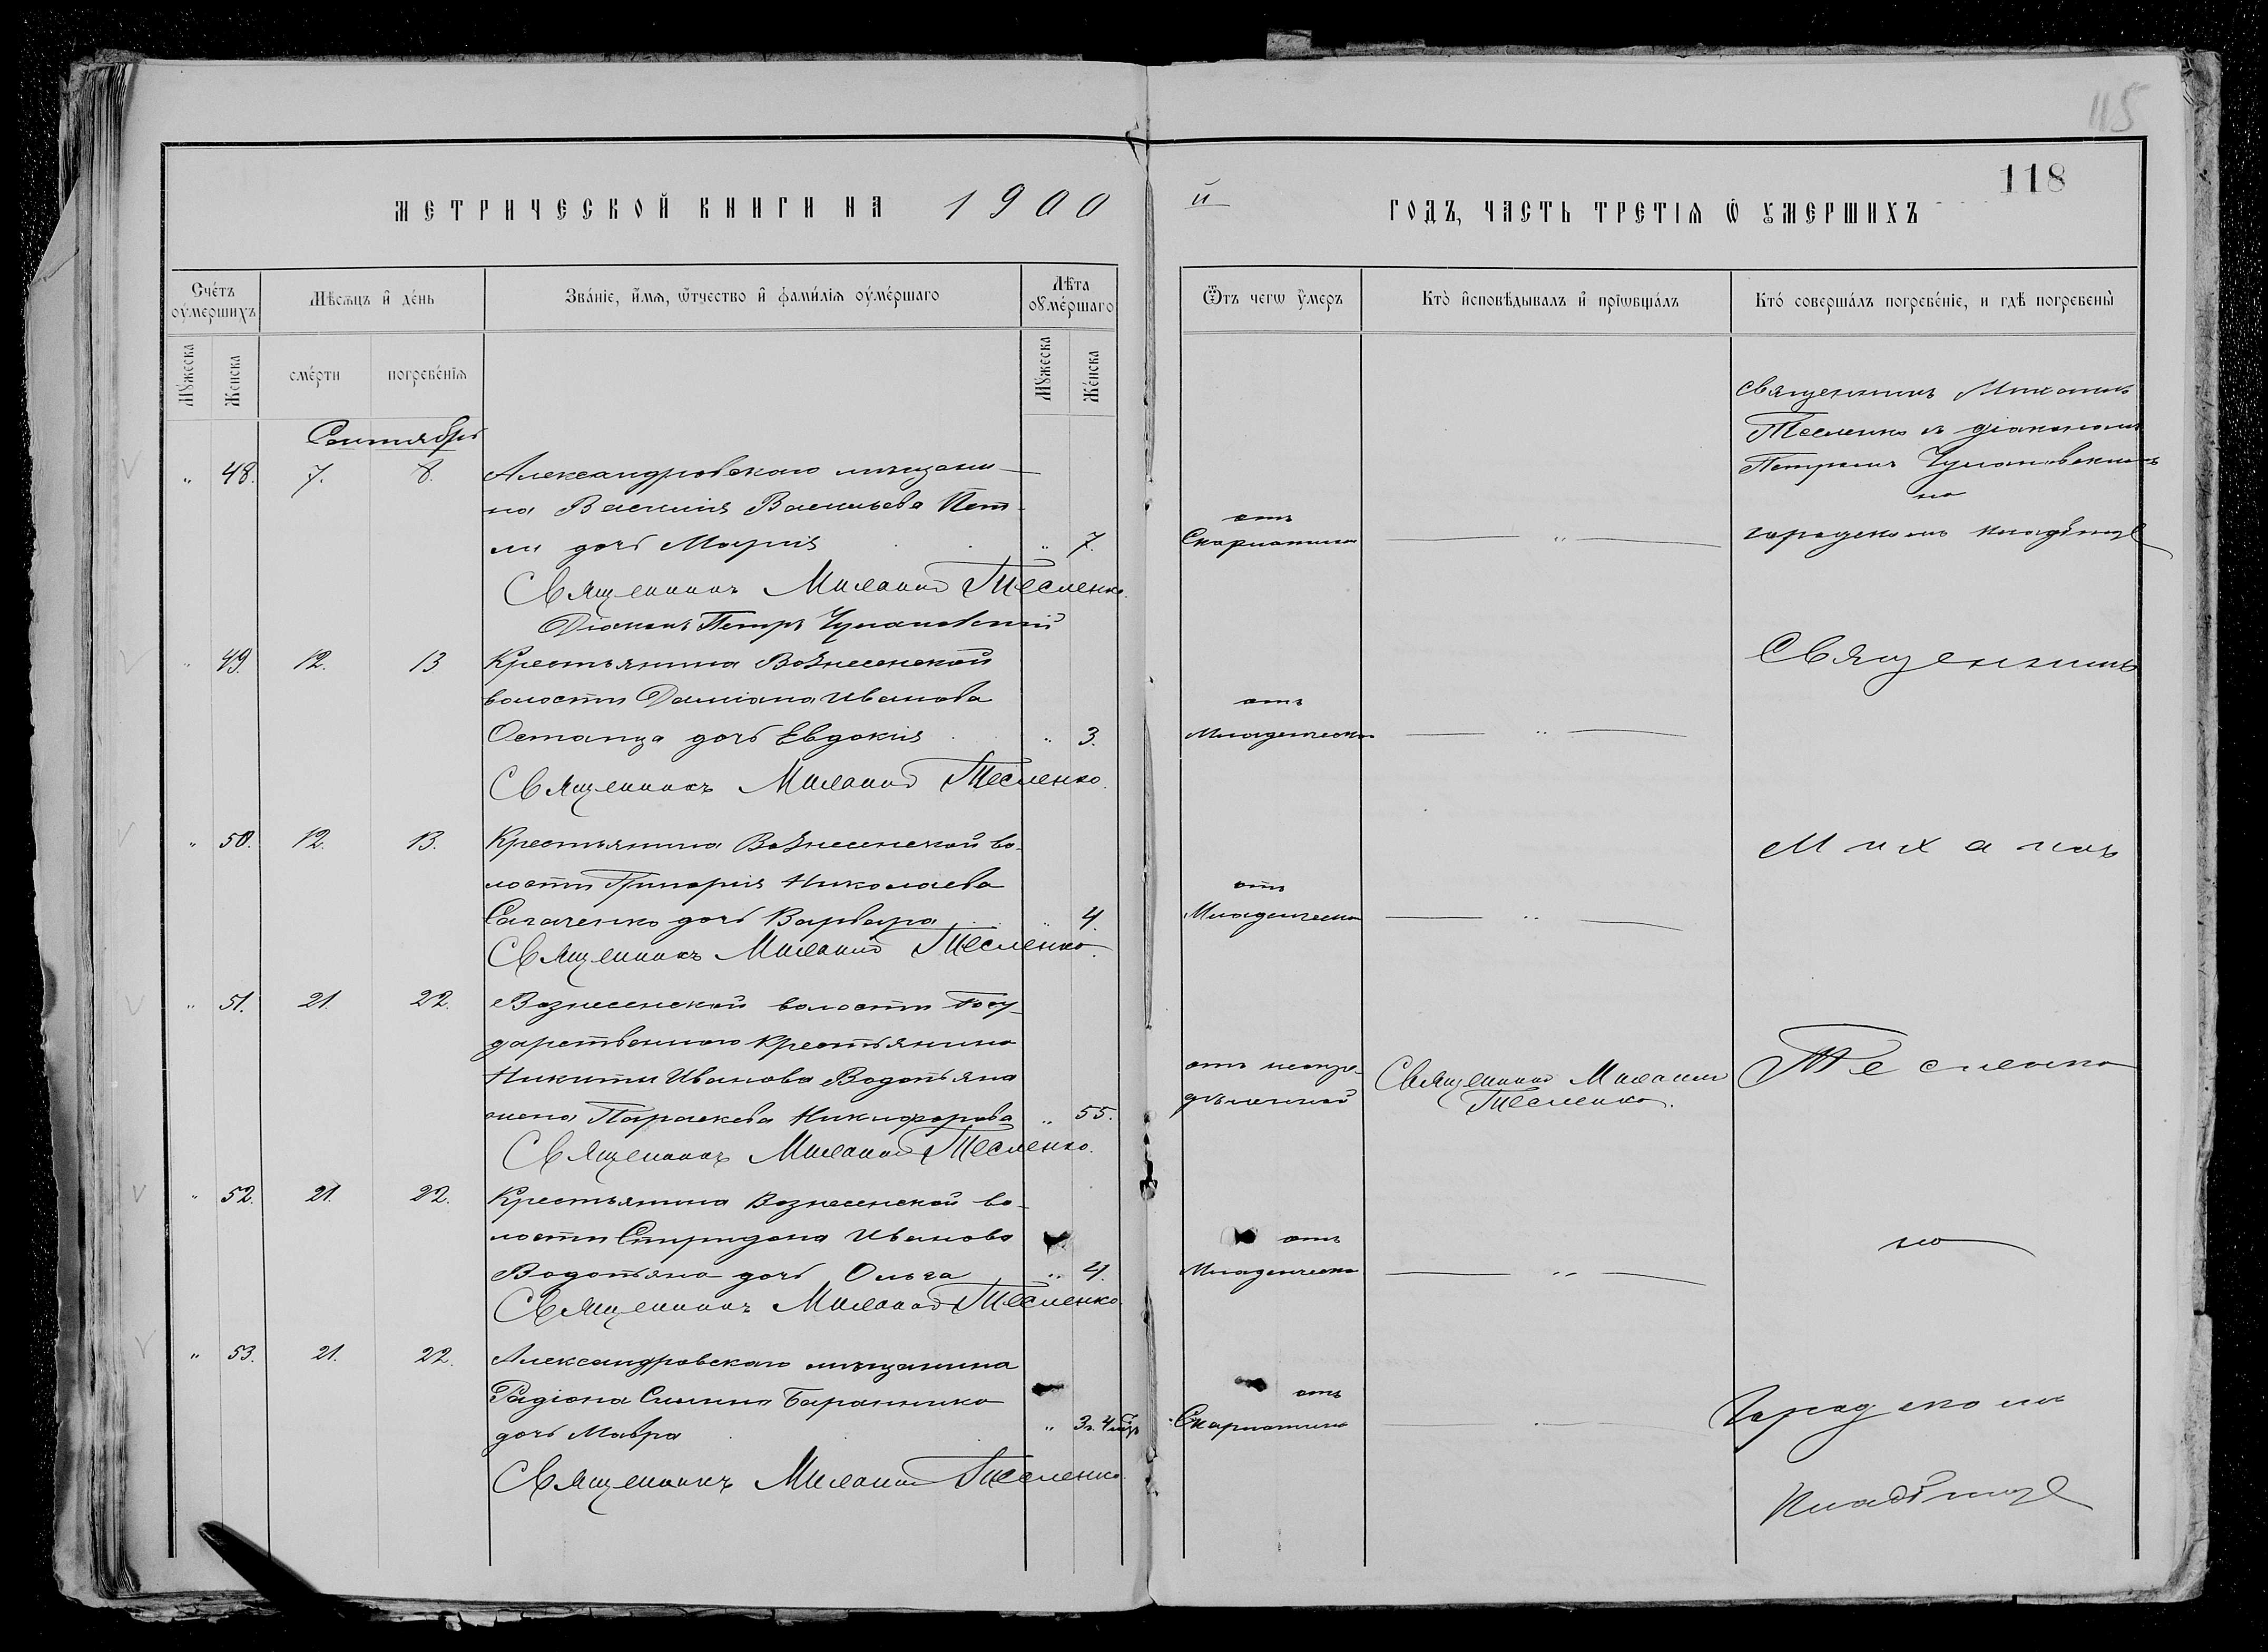 115
118
МЕТРИЧЕСКОЙ КНИГИ НА 1900
й ГОДЪ, ЧАСТЬ ТРЕТІѦ Ѿ ꙊМЕРШИХЪ
Счетъ оумершихъ
Мѣсѧцъ и день
Званіе, имѧ, ѿчество и фамиліѧ оумершаго
Лѣта оумершаго
Ѿъ чегѡ умеръ
Кто исповѣдывалъ и пріѡбщалъ
Кто совершалъ погребеніе, и гдѣ погребены
Мужеска
Женска
смерти
погребеніѧ
Мужеска
Женска
Сентябрь
" 48. 7. 8. Александровскаго мѣщани-
на Василія Васильева Пет-
ли дочь Марія " 7.
отъ
Скарлатины — " —
Священникъ Михаилъ
Тесленко съ діакономъ
Петромъ Чулановскимъ
на
городскомъ кладбищѣ
Священникъ Михаилъ Тесленко.
Діаконъ Петръ Чулановскій
" 49. 12. 13 Крестьянина Вознесенской
волости Даміана Иванова
Остапца дочь Евдокія " 3.
отъ
Младенческой — " —
Священникъ
Священникъ Михаилъ Тесленко.
" 50. 12. 13. Крестьянина Вознесенской во-
лости Григорія Николаева
Сагаченко дочь Варвара " 4.
отъ
Младенческой — " —
Михаилъ
Священникъ Михаилъ Тесленко.
" 51. 21. 22. Вознесенской волости Госу-
дарственнаго крестьянина
Никиты Иванова Водопьяна
жена Параскева Никифорова " 55.
отъ неопре-
дѣленной
Священникъ Михаилъ
Тесленко.
Тесленко
Священникъ Михаилъ Тесленко.
" 52. 21. 22. Крестьянина Вознесенской во-
лости Спиридона Иванова
Водопьяна дочь Ольга " 4.
отъ
Младенческой — " —
на
Священникъ Михаилъ Тесленко
" 53. 21. 22. Александровскаго мѣщанина
Радіона Силина Баранника
дочь Мавра " 3г. 4 мѣс.
отъ
Скарлатины — " —
Городскомъ
Кладбищѣ
Священникъ Михаилъ Тесленко.